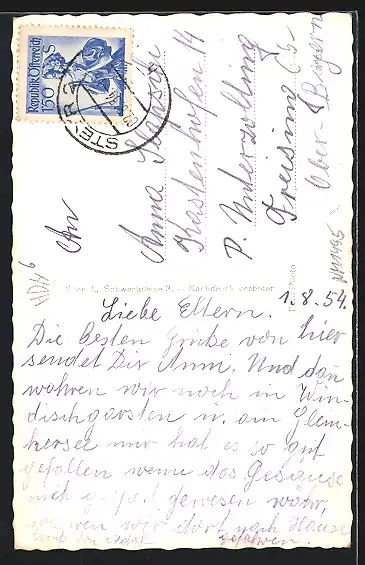 Republik Österreich
1·50 S
STEYR 2
An
Anna
Kastenhofen 14
P. Unterzolling
Freising
Ober-Bayern
Wien Schwertgasse 3. — Nachdruck verboten
Photo
1.8.54.
Liebe Eltern.
Die besten Grüße von hier
sendet Dir Anni. Und dan
wahren wir noch in Win-
dischgarsten u. am Glein-
kersee mir hat es so gut
gefallen wenn das Gesäuse
nich gewesen wahr,
wen wir dort nach Hause
gefahren.